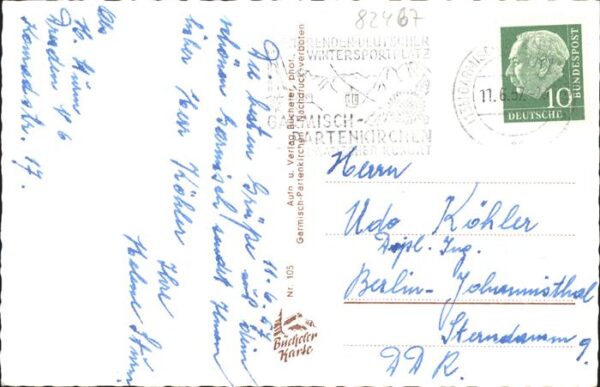 82467
FÜHRENDER DEUTSCHER
WINTERSPORTPLATZ
GARMISCH-
PARTENKIRCHEN
HEILKLIMATISCHER KURORT
11.6.57
10
DEUTSCHE
BUNDESPOST
Abs
H. Sturm
Dresden A 6
Konradstr. 17.
11.6.57
Die besten Grüße aus dem
schönen Garmisch sendet Ihnen
lieber Herr Köhler Ihre
Helene Sturm
Aufn. u. Verlag Bücheler, phot.
Garmisch-Partenkirchen. Nachdruck verboten
Nr. 105
Bücheler
Karte
Herrn
Udo Köhler
Dipl. Ing.
Berlin-Johannisthal
Sterndamm 9.
DDR.